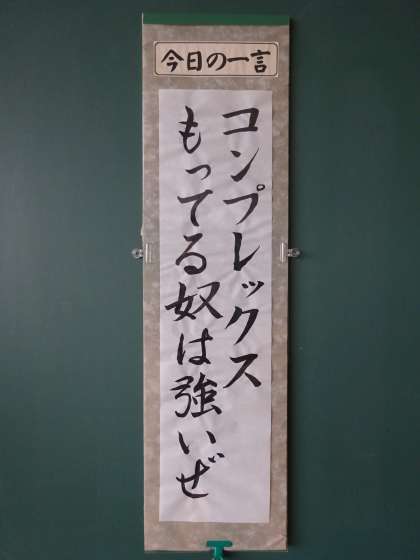 今日の一言
コンプレックス
もってる奴は強いぜ